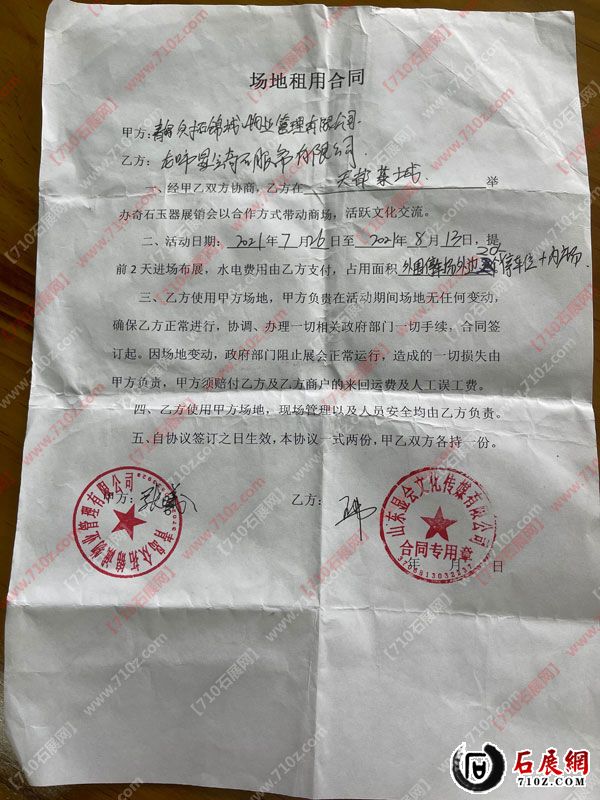 场地租用合同
甲方：青岛久拓锦城物业管理有限公司
乙方：石服务有限公司
一、经甲乙双方协商，乙方在 天都菜城 举
办奇石玉器展销会以合作方式带动商场，活跃文化交流。
二、活动日期：2021年7月26日至2021年8月13日，提
前2天进场布展，水电费用由乙方支付，占用面积 停车位+内场
三、乙方使用甲方场地，甲方负责在活动期间场地无任何变动，
确保乙方正常进行，协调、办理一切相关政府部门一切手续，合同签
订起。因场地变动，政府部门阻止展会正常运行，造成的一切损失由
甲方负责，甲方须赔付乙方及乙方商户的来回运费及人工误工费。
四、乙方使用甲方场地，现场管理以及人员安全均由乙方负责。
五、自协议签订之日生效，本协议一式两份，甲乙双方各持一份。
甲方：
乙方：
年 月 日
山东昱会文化传媒有限公司
合同专用章
【710石展网】
www.710z.com
石展網
www.710z.com